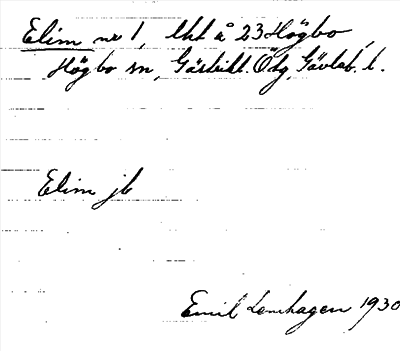 Elim nr 1, lht å 23 Högbo,
Högbo sn, Gästrikl. Ödg, Gävleb. l.
Elim jb
Emil Lenhagen 1930